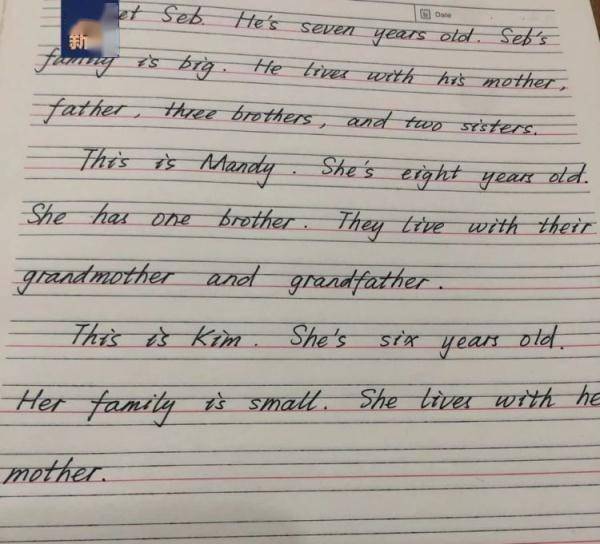 新
et Seb. He's seven years old. Seb's
Date
family is big. He lives with his mother,
father, three brothers, and two sisters.
This is Mandy. She's eight years old.
She has one brother. They live with their
grandmother and grandfather.
This is Kim. She's six years old.
Her family is small. She lives with he
mother.